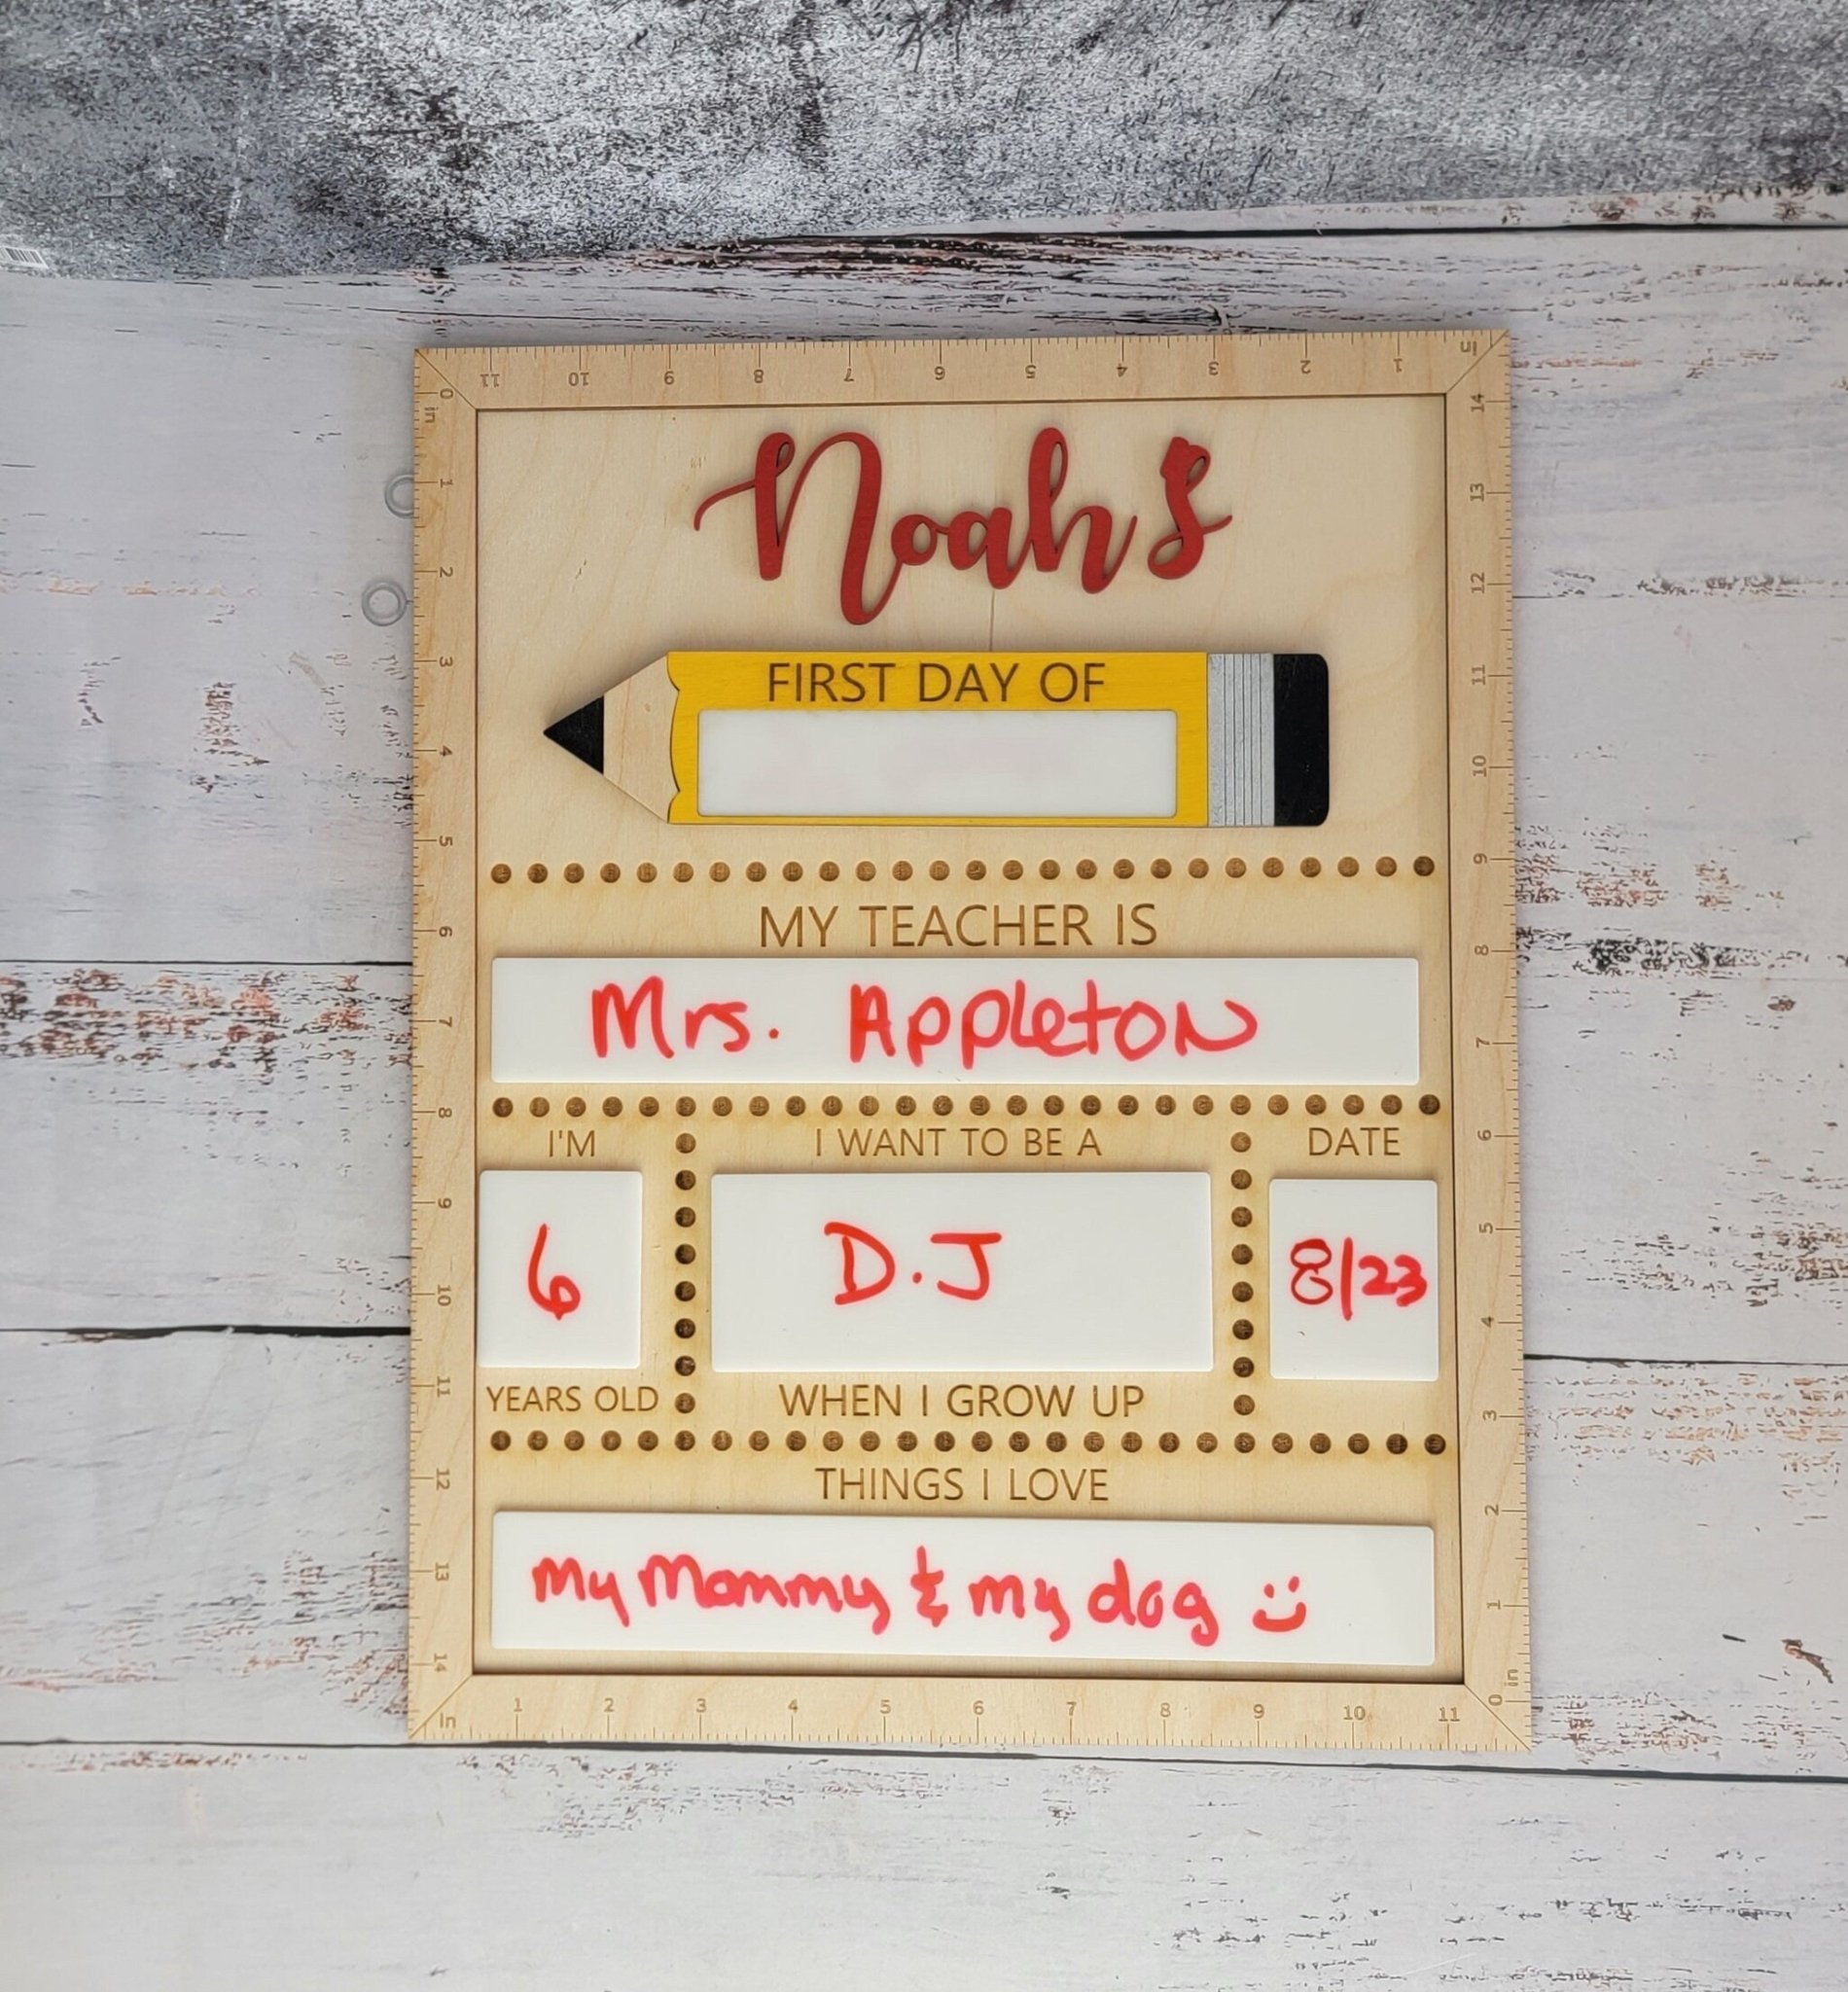 11 10 9 8 7 6 5 4 3 2 1 in
0 in 1 2 3 4 5 6 7 8 9 10 11 12 13 14
14 13 12 11 10 9 8 7 6 5 4 3 2 1 0 in
Noah's
FIRST DAY OF
MY TEACHER IS
Mrs. Appleton
I'M
6
YEARS OLD
I WANT TO BE A
D.J
WHEN I GROW UP
DATE
8/23
THINGS I LOVE
My Mommy & my dog
in 1 2 3 4 5 6 7 8 9 10 11